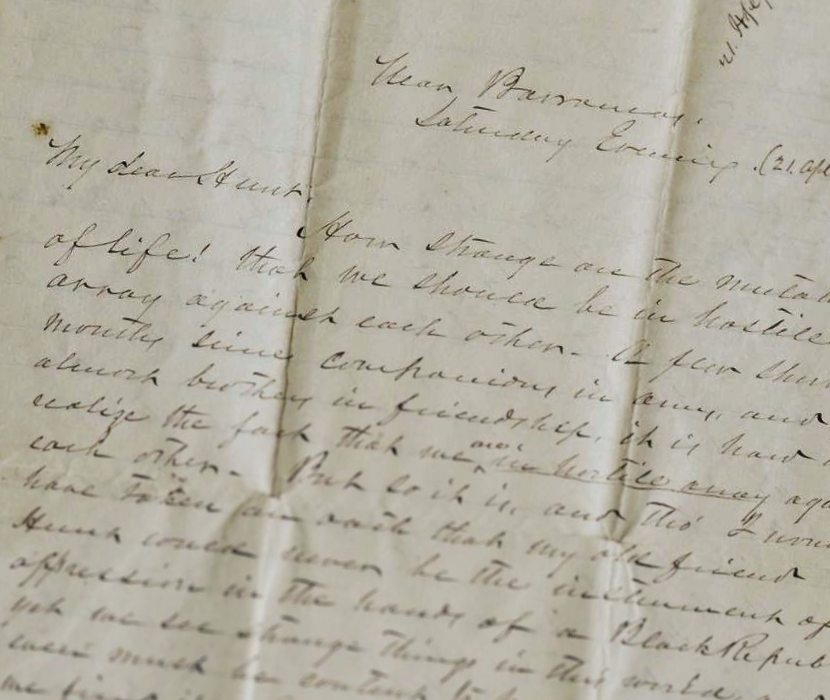 21. Ap
Near Barrancas.
Saturday Evening. (21. Apl
My dear Hunt.
How strange are the mutat
of life! that we should be in hostile
array against each other - A few shor
months since companions in arms, and
almost brothers in friendship, it is hard
realize the fact that we are in hostile array aga
each other - But so it is, and tho' I
have taken an oath that my old friend
Hunt would never be the instrument of
oppression in the hands of a Black Repub
yet we see strange things in this world
must be content